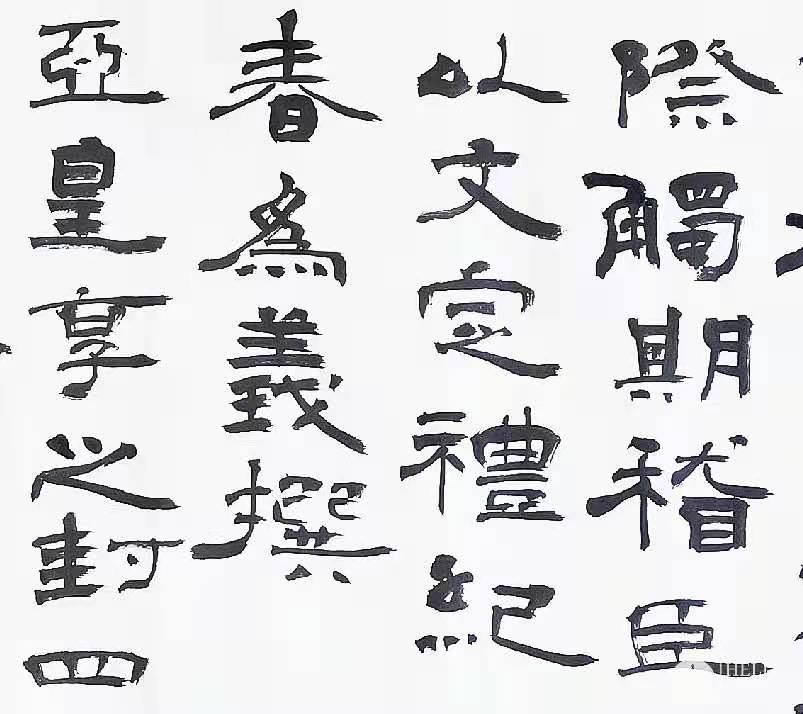 際觸期稽臣
以文定禮紀
春為義撰
亞皇享之封四